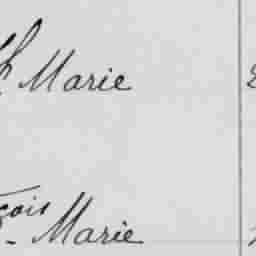 Marie
çois
- Marie